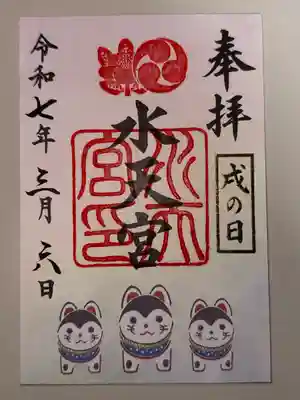 奉拝
戌の日
水天宮
水天
宮印
令和七年三月一六日